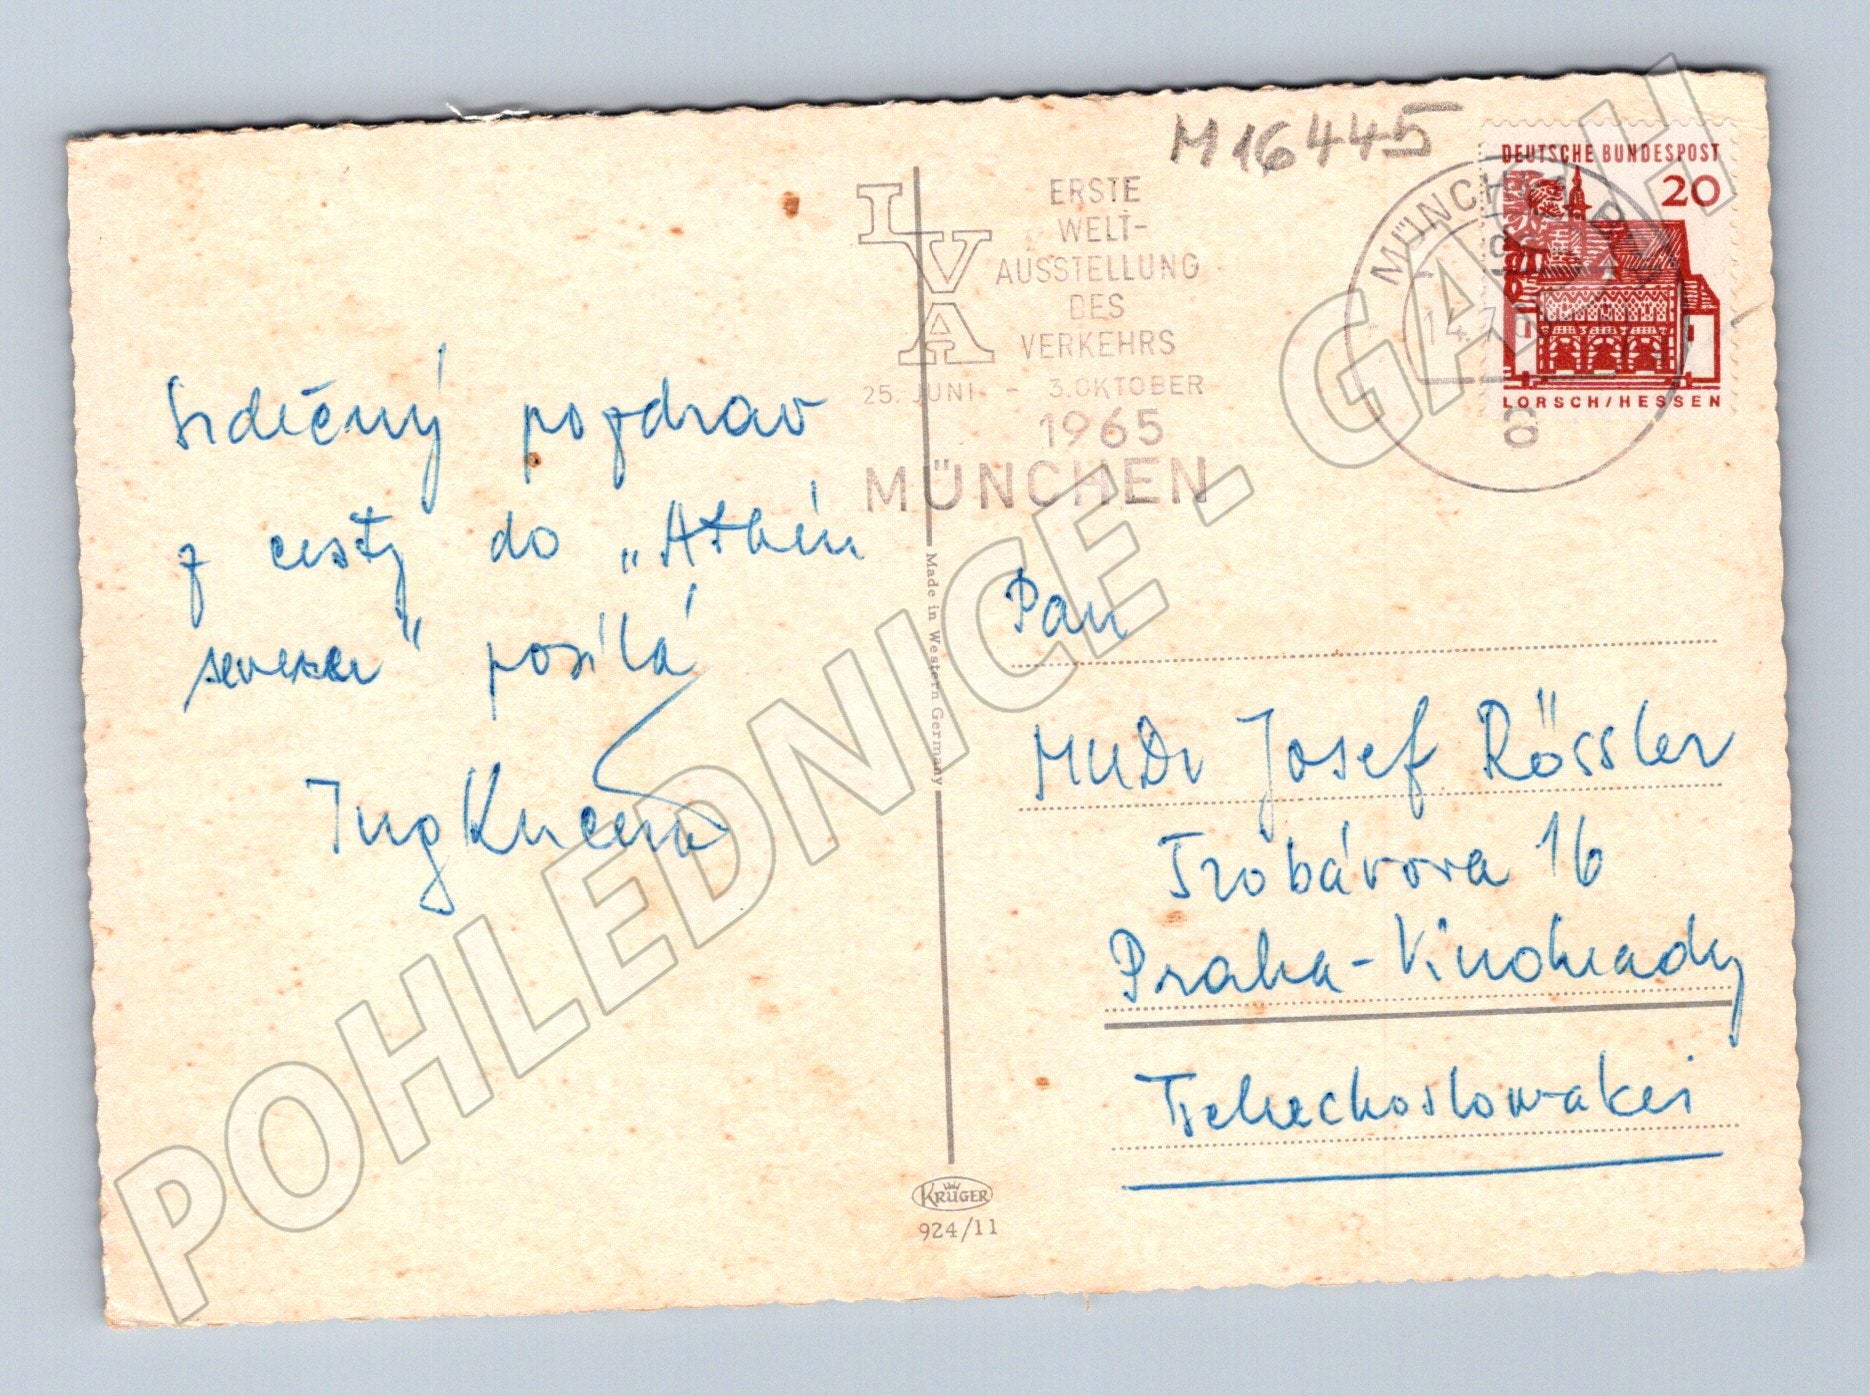 M 16445
DEUTSCHE BUNDESPOST
20
LORSCH/HESSEN
MÜNCHEN
14.7.
a
IVA
ERSTE
WELT-
AUSSTELLUNG
DES
VERKEHRS
25. JUNI - 3. OKTOBER
1965
MÜNCHEN
Srdečný pozdrav
z cesty do „Athén
severu" posílá
Ing Kučera
Made in Western Germany
Pan
MUDr Josef Rössler
Trobávova 16
Praha - Vinohrady
Tschechoslowakei
KRÜGER
924/11
POHLEDNICE - GALH